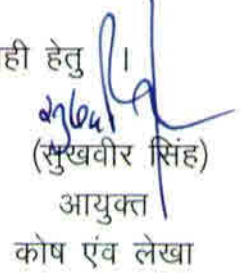 ही हेतु ।
(सुखवीर सिंह)
आयुक्त
कोष एंव लेखा